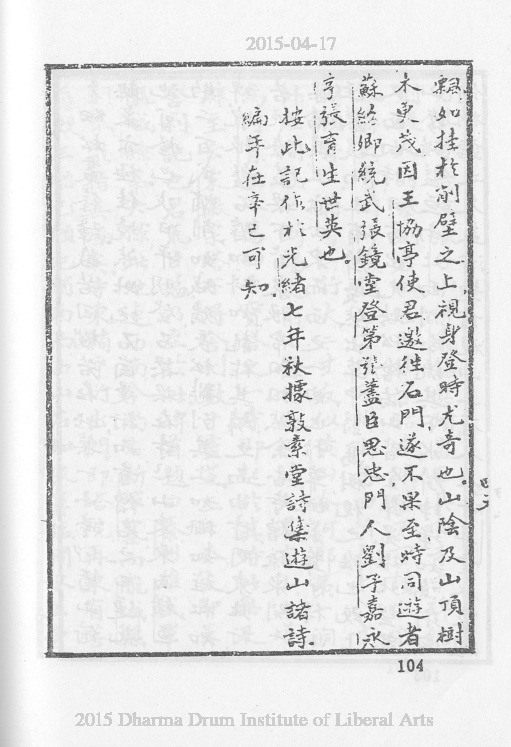 2015-04-17
飄如挂於削壁之上視身登時尤奇也山陰及山頂樹
木更茂因王協亭使君邀往石門遂不果至時同遊者
蘇 卿統武張鏡堂登第 藎臣思忠門人劉子嘉永
亨張育生世英也
按此記作於光緒七年秋據敦素堂詩集遊山諸詩
編年在辛巳可知
104
2015 Dharma Drum Institute of Liberal Arts